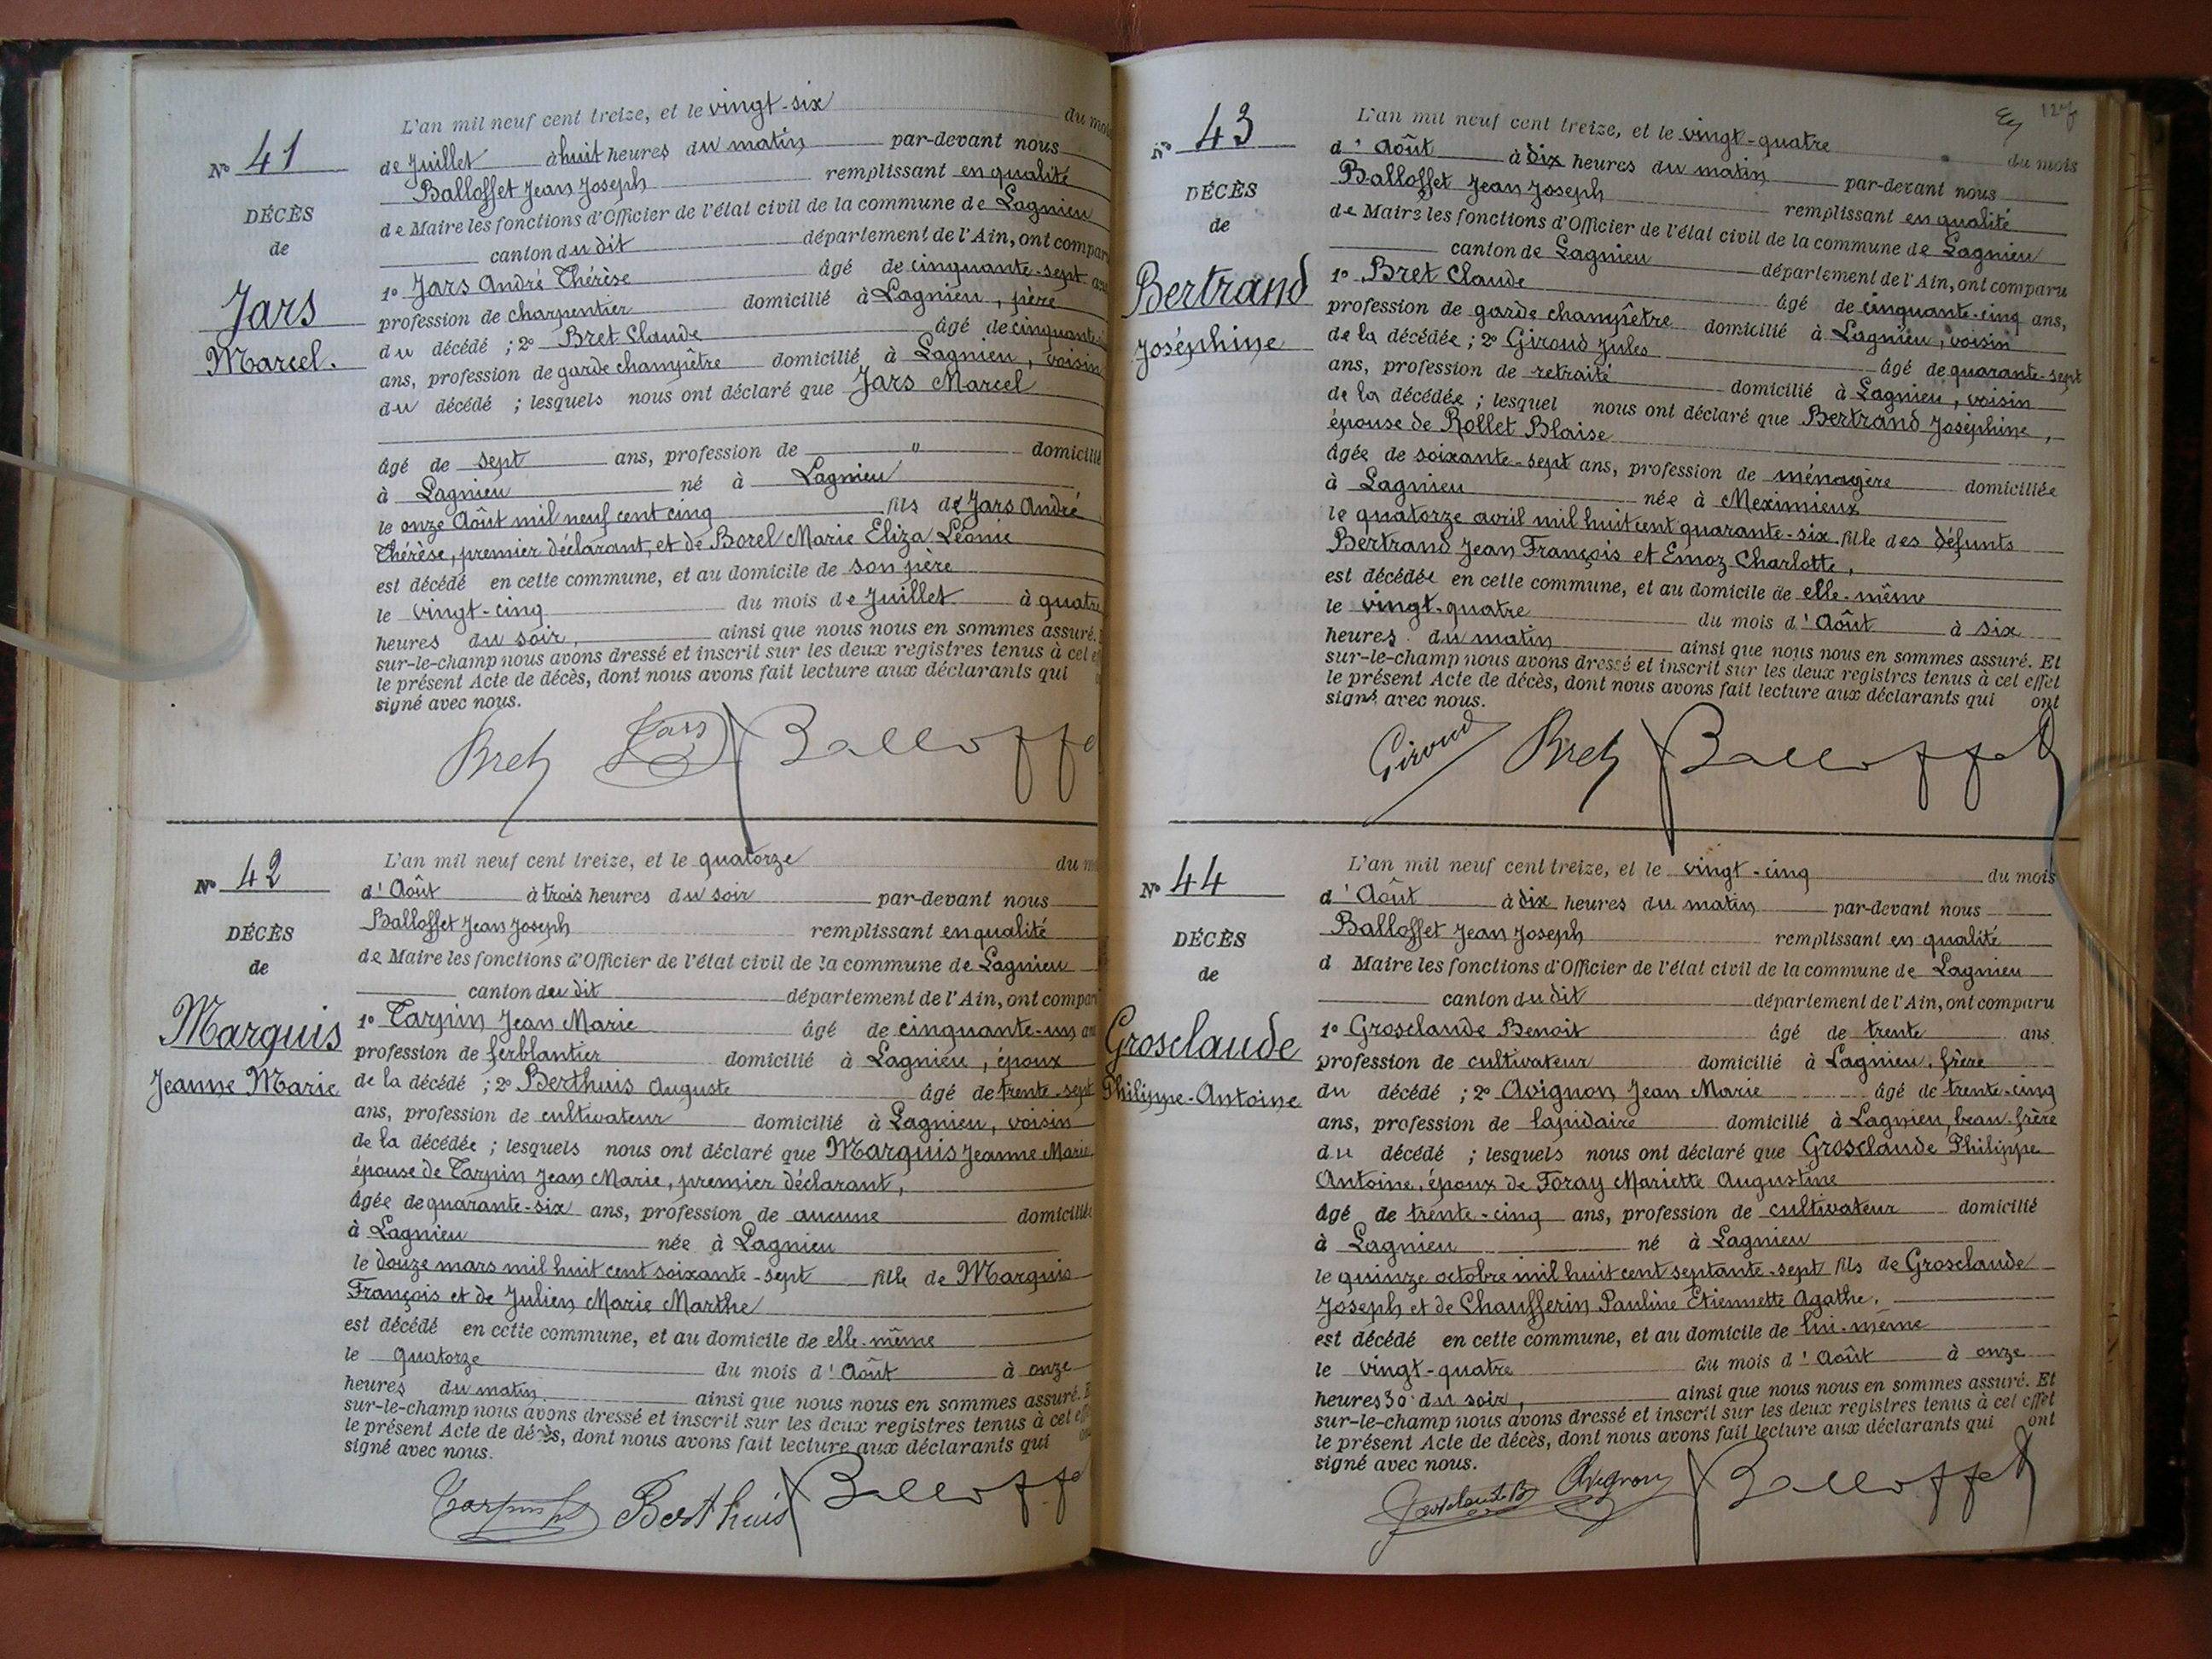 N° 41
DÉCÈS
de
Jars
Marcel.
L'an mil neuf cent treize, et le vingt-six du mois
de Juillet à huit heures du matin par-devant nous
Balloffet Jean Joseph remplissant en qualité
de Maire les fonctions d'Officier de l'état civil de la commune de Lagnieu
canton du dit département de l'Ain, ont compar
1° Jars André Thérèse âgé de cinquante-sept ans
profession de charpentier domicilié à Lagnieu, père
du décédé ; 2° Bret Claude âgé de cinquante
ans, profession de garde champêtre domicilié à Lagnieu, voisin
du décédé ; lesquels nous ont déclaré que Jars Marcel
âgé de sept ans, profession de " domicilié
à Lagnieu né à Lagnieu
le onze Août mil neuf cent cinq fils de Jars André
Thérèse, premier déclarant, et de Borel Marie Eliza Léonie
est décédé en cette commune, et au domicile de son père
le vingt-cinq du mois de Juillet à quatre
heures du soir, ainsi que nous nous en sommes assuré.
sur-le-champ nous avons dressé et inscrit sur les deux registres tenus à cet ef
le présent Acte de décès, dont nous avons fait lecture aux déclarants qui
signé avec nous.
Bret Jars Balloffe
N° 42
DÉCÈS
de
Marquis
Jeanne Marie
L'an mil neuf cent treize, et le quatorze du m
d'Août à trois heures du soir par-devant nous
Balloffet Jean Joseph remplissant en qualité
de Maire les fonctions d'Officier de l'état civil de la commune de Lagnieu
canton du dit département de l'Ain, ont compar
1° Tarpin Jean Marie âgé de cinquante-un an
profession de ferblantier domicilié à Lagnieu, époux
de la décédé ; 2° Berthuis Auguste âgé de trente-sept
ans, profession de cultivateur domicilié à Lagnieu, voisin
de la décédée ; lesquels nous ont déclaré que Marquis Jeanne Marie
épouse de Tarpin Jean Marie, premier déclarant,
âgée de quarante-six ans, profession de aucune domiciliée
à Lagnieu née à Lagnieu
le douze mars mil huit cent soixante-sept fille de Marquis
François et de Julien Marie Marthe
est décédé en cette commune, et au domicile de elle-même
le quatorze du mois d'Août à onze
heures du matin, ainsi que nous nous en sommes assuré. E
sur-le-champ nous avons dressé et inscrit sur les deux registres tenus à cet eff
le présent Acte de décès, dont nous avons fait lecture aux déclarants qui on
signé avec nous.
Tarpin Berthuis Balloffe
127
N° 43
DÉCÈS
de
Bertrand
Joséphine
L'an mil neuf cent treize, et le vingt-quatre du mois
d'Août à dix heures du matin par-devant nous
Balloffet Jean Joseph remplissant en qualité
de Maire les fonctions d'Officier de l'état civil de la commune de Lagnieu
canton de Lagnieu département de l'Ain, ont comparu
1° Bret Claude âgé de cinquante-cinq ans,
profession de garde champêtre domicilié à Lagnieu, voisin
de la décédée ; 2° Giroud Jules âgé de quarante-sept
ans, profession de retraité domicilié à Lagnieu, voisin
de la décédée ; lesquel nous ont déclaré que Bertrand Joséphine,
épouse de Rollet Blaise
âgée de soixante-sept ans, profession de ménagère domiciliée
à Lagnieu née à Meximieux
le quatorze avril mil huit cent quarante-six fille des défunts
Bertrand Jean François et Emoz Charlotte,
est décédée en cette commune, et au domicile de elle-même
le vingt-quatre du mois d'Août à six
heures du matin ainsi que nous nous en sommes assuré. Et
sur-le-champ nous avons dressé et inscrit sur les deux registres tenus à cet effet
le présent Acte de décès, dont nous avons fait lecture aux déclarants qui ont
signé avec nous.
Giroud Bret Balloffet
N° 44
DÉCÈS
de
Grosclaude
Philippe-Antoine
L'an mil neuf cent treize, et le vingt-cinq du mois
d'Août à dix heures du matin par-devant nous
Balloffet Jean Joseph remplissant en qualité
d Maire les fonctions d'Officier de l'état civil de la commune de Lagnieu
canton du dit département de l'Ain, ont comparu
1° Grosclaude Benoit âgé de trente ans
profession de cultivateur domicilié à Lagnieu, frère
du décédé ; 2° Avignon Jean Marie âgé de trente-cinq
ans, profession de lapidaire domicilié à Lagnieu, beau-frère
du décédé ; lesquels nous ont déclaré que Grosclaude Philippe
Antoine, époux de Foray Mariette Augustine
âgé de trente-cinq ans, profession de cultivateur domicilié
à Lagnieu né à Lagnieu
le quinze octobre mil huit cent septante-sept fils de Grosclaude
Joseph et de Chaufferin Pauline Etiennette Agathe,
est décédé en cette commune, et au domicile de lui-même
le vingt-quatre du mois d'Août à onze
heures 30 du soir, ainsi que nous nous en sommes assuré. Et
sur-le-champ nous avons dressé et inscrit sur les deux registres tenus à cet effet
le présent Acte de décès, dont nous avons fait lecture aux déclarants qui ont
signé avec nous.
Grosclaude B Avignon Balloffet